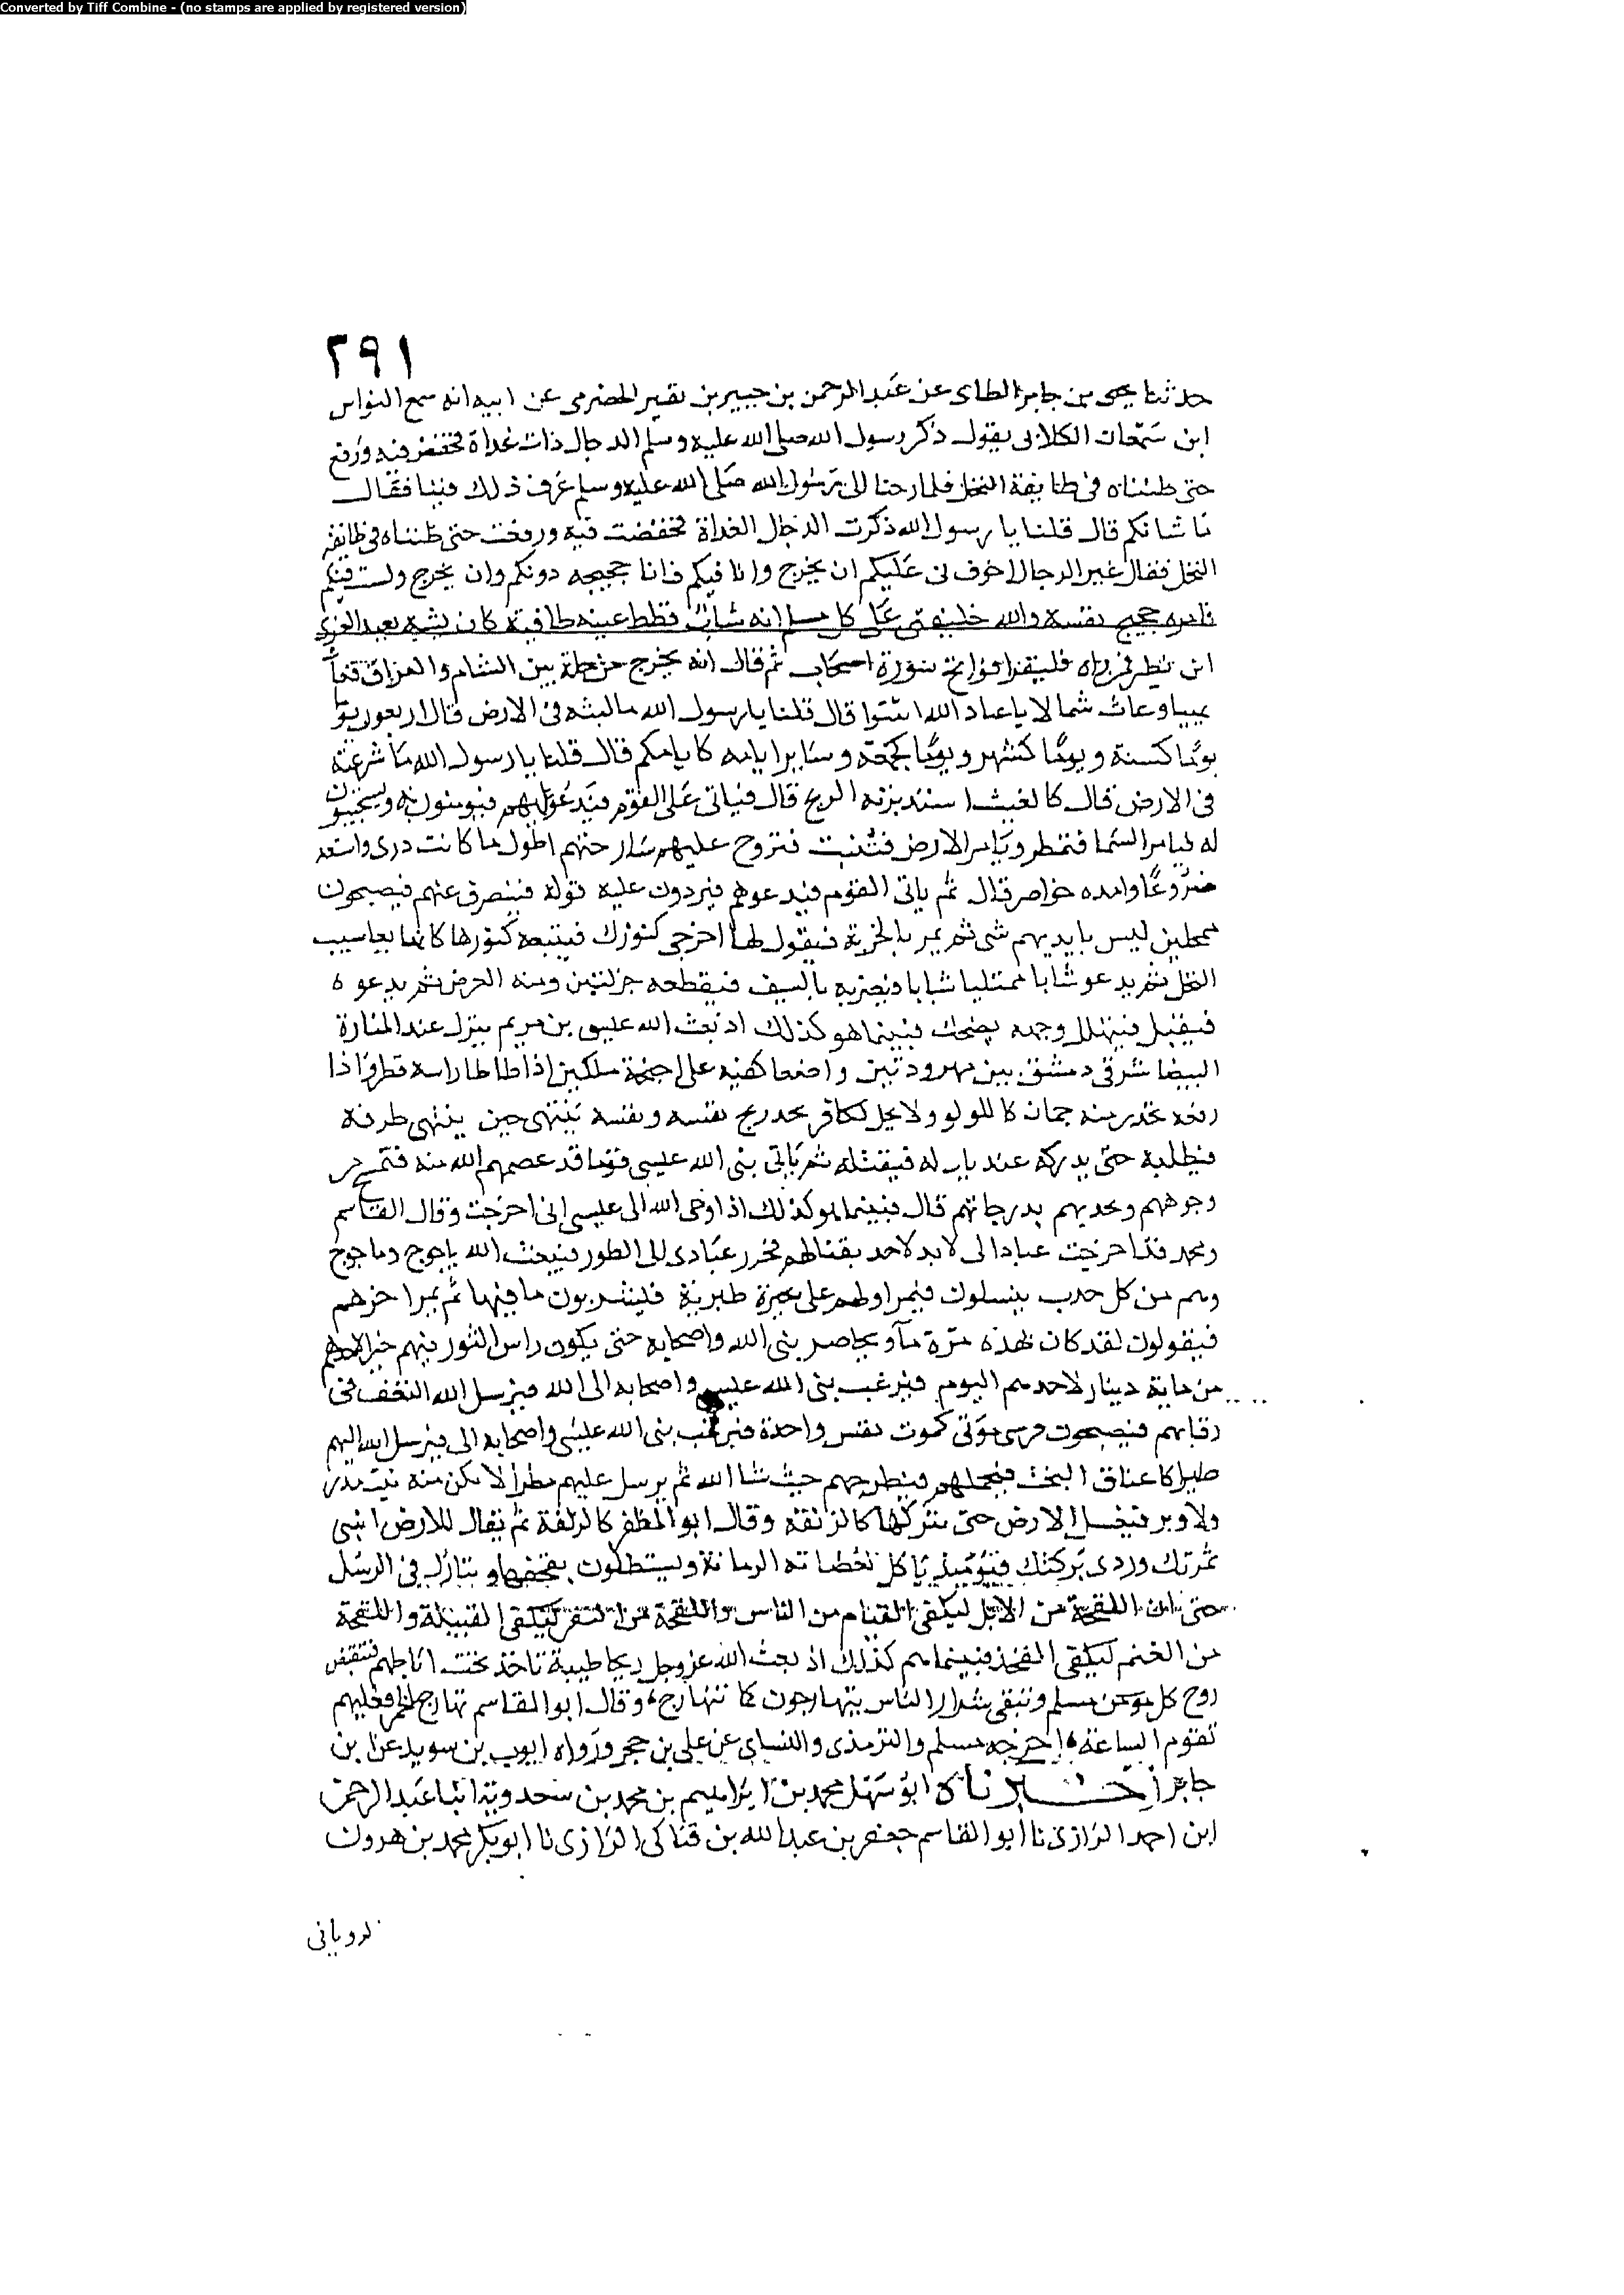 Converted by Tiff Combine - (no stamps are applied by registered version)
٢٩١
حدثنا يحيى بن جابر الطاى عن عبد الرحمن بن جبير بن نفير الحضرمى عن ابيه انه سمع النواس
ابن سمعان الكلابى يقول ذكر رسول الله صلى الله عليه وسلم الدجال ذات غداة فخفض فيه ورفع
حتى ظنناه فى طايفة النخل فلما رحنا الى رسول الله صلى الله عليه وسلم عرف ذلك فينا فقال
ما شانكم قال قلنا يا رسول الله ذكرت الدجال الغداة فخفضت فيه ورفعت حتى ظنناه فى طايفة
النخل فقال غير الدجال اخوف لى عليكم ان يخرج وانا فيكم فانا حجيجه دونكم وان يخرج ولست فيكم
فامرو حجيج نفسه والله خليفتى على كل مسلم انه شاب قطط عينه طافية كان يشبه بعبد العزى
ابن قطن فمن راه فليقرا فواتح سورة اصحاب ثم قال انه يخرج من حلة بين الشام والعراق فعاث
يمينا وعاث شمالا يا عباد الله اثبتوا قال قلنا يا رسول الله ما لبثه فى الارض قال اربعون يوما
يوما كسنة ويوما كشهر ويوما كجمعة وساير ايامه كايامكم قال قلنا يا رسول الله ما سرعته
فى الارض قال كالغيث استدبرته الريح قال فياتى على القوم فيدعوهم فيومنون به ويستجيبون
له فيامر السما فتمطر ويامر الارض فتنبت فتروح عليهم سارحتهم اطول ما كانت درى واسبعه
ضروعا وامده خواصر قال ثم ياتى القوم فيدعوهم فيردون عليه قوله فينصرف عنهم فيصبحون
ممحلين ليس بايديهم شى ثم يمر بالخربة فيقول لها اخرجى كنوزك فيتبعه كنوزها كانها يعاسيب
النخل ثم يدعو شابا ممتليا شبابا فيضربه بالسيف فيقطعه جزلتين رمية الغرض ثم يدعوه
فيقبل فيتهلل وجهه يضحك فبينما هو كذلك اذ بعث الله عيسى بن مريم ينزل عند المنارة
البيضا شرقى دمشق بين مهرودتين واضعا كفيه على اجنحة ملكين اذا طاطا راسه قطر واذا
رفعه تحدر منه جمان كاللولو ولا يحل لكافر يجد ريح نفسه ونفسه ينتهى حين ينتهى طرفه
فيطلبه حتى يدركه عند باب له فيقتله ثم ياتى نبى الله عيسى قوما قد عصمهم الله منه فيمسح
وجوههم ويحدثهم بدرجاتهم قال فبينما هو كذلك اذ اوحى الله الى عيسى انى اخرجت وقال القاسم
ومحمد قد اخرجت عبادا لى لا يد لاحد بقتالهم فحرز عبادى الى الطور فيبعث الله ياجوج وماجوج
وهم من كل حدب ينسلون فيمر اولهم على بحيرة طبرية فليشربون ما فيها ثم يمر اخرهم
فيقولون لقد كان بهذه مرة ماء ويحاصر نبى الله واصحابه حتى يكون راس الثور فيهم خير لاحدهم
من ماية دينار لاحدهم اليوم فيرغب نبى الله عيسى واصحابه الى الله فيرسل الله النغف فى
رقابهم فيصبحون فرسى موتى كموت نفس واحدة فيرغب نبى الله عيسى واصحابه الى فيرسل الله اليهم
طيرا كاعناق البخت فتحملهم فتطرحهم حيث شا الله ثم يرسل عليهم مطرا لا يكن منه بيت مدر
ولا وبر فيغسل الارض حتى يتركها كالزلقة وقال ابو المظفر كالزلفة ثم يقال للارض انبتى
ثمرتك وردى بركتك فيومئذ ياكل العصابة الرمانة ويستظلون بقحفها ويبارك فى الرسل
حتى ان اللقحة من الابل ليكفى الفيام من الناس واللقحة من البقر ليكفى القبيلة واللقحة
من الغنم ليكفى الفخذ فبينما هم كذلك اذ بعث الله عز وجل ريحا طيبة تاخذ تحت اباطهم فتقبض
روح كل مومن مسلم وتبقى شرار الناس يتهارجون كما تتهارج وقال ابو القاسم تهارج الحمر فعليهم
تقوم الساعة اخرجه مسلم والترمذى والنساى عن على بن حجر ورواه ايوب بن سويد عن ابن
جابر اخبرناه ابو سهل محمد بن ابراهيم بن محمد بن سعدوية انبا عبد الرحمن
ابن احمد الرازى نا ابو القاسم جعفر بن عبد الله بن فناكى الرازى نا ابو بكر محمد بن هرون
الرويانى